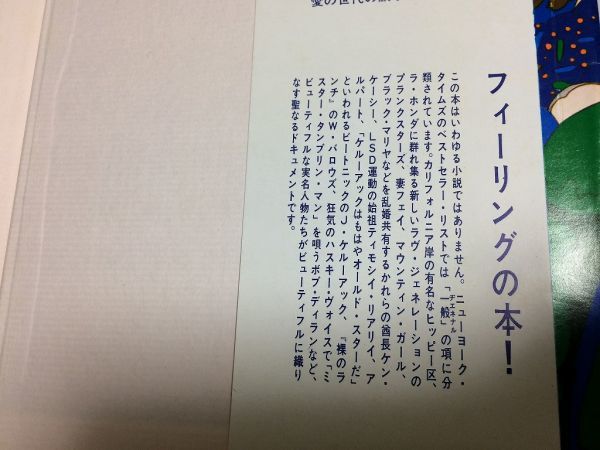 愛の世代の
フィーリングの本!
この本はいわゆる小説ではありません。ニューヨーク・
タイムズのベストセラー・リストでは「一般」の項に分
ヂェネナル
類されています。カリフォルニア岸の有名なヒッピー区、
ラ・ホンダに群れ集る新しいラヴ・ジェネレーションの
プランクスターズ、妻フェイ、マウンティン・ガール、
ブラック・マリヤなどを乱婚共有するかれらの酋長ケン・
ケーシー、LSD運動の始祖ティモシイ・リアリイ、ア
ルパート、「ケルーアックはもはやオールド・スターだ」
といわれるビートニックのJ・ケルーアック、『裸のラ
ンチ』のW・バロウズ、狂気のハスキー・ヴォイスで「ミ
スター・タンブリン・マン」を唄うボブ・ディランなど、
ビューティフルな実名人物たちがビューティフルに織り
なす聖なるドキュメントです。